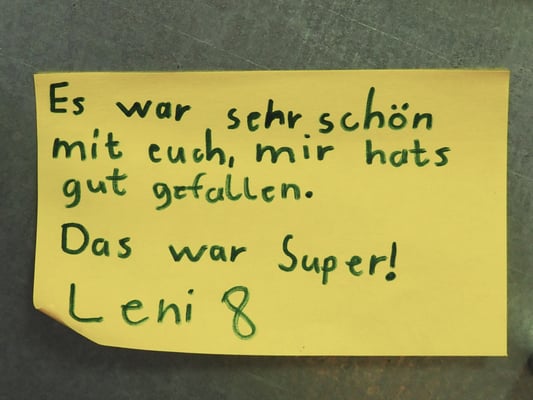 Es war sehr schön
mit euch, mir hats
gut gefallen.
Das war Super!
Leni 8